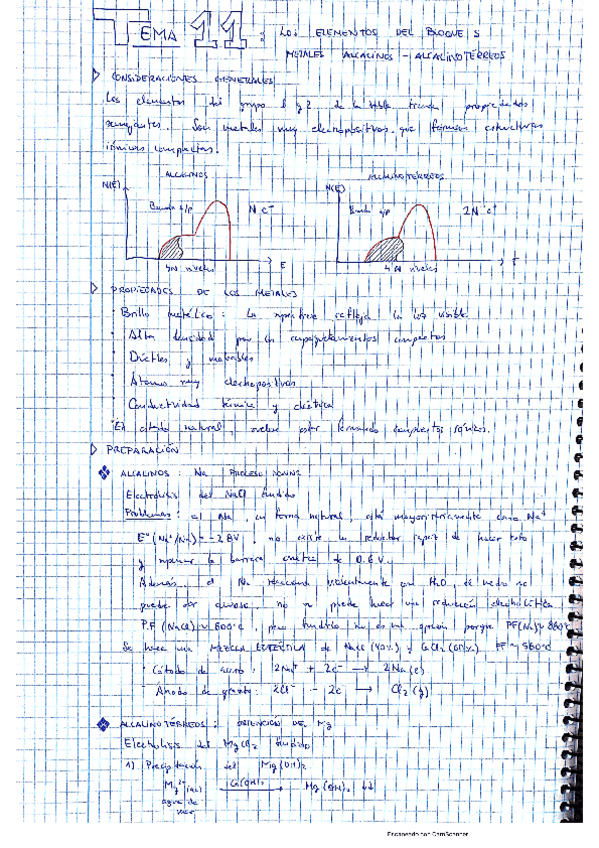 TEMA 11: LOS ELEMENTOS DEL BLOQUE S
METALES ALCALINOS - ALCALINOTÉRREOS
CONSIDERACIONES GENERALES
Los elementos del grupo 1 y 2 de la tabla propiedades
semejantes. Son metales muy electropositivos que forman estructuras
iónicas compactas.
ALCALINOS
ALCALINOTÉRREOS
N(E)
Banda s/p
N e⁻
N(E)
Banda s/p
2N e⁻
4N niveles
E
4N niveles
E
PROPIEDADES DE LOS METALES
Brillo metálico: La superficie refleja la luz visible
Alta densidad por los empaquetamientos compactos
Dúctiles y maleables
Átomos muy electropositivos
Conductividad térmica y eléctrica
El estado natural, suelen estar formando compuestos iónicos.
PREPARACIÓN
ALCALINOS: Na PROCESO DOWNS
Electrólisis del NaCl fundido
Problemas: el Na, en forma natural, está mayoritariamente como Na⁺
E° (Na⁺/Na) = -2.8V, no existe un reductor capaz de hacer esto
y superar la barrera de 0.6 V.
Además, el Na reacciona violentamente con H₂O, el medio no
puede ser acuoso, no se puede hacer una reducción electrolítica
P.F (NaCl) ~ 800°C, pero fundirlo no es una opción porque PF(Na) ~ 880°C
Se hace una MEZCLA EUTÉCTICA de NaCl (40%) y CaCl₂ (60%) PF ~ 580°C
Cátodo de acero: 2Na⁺ + 2e⁻ → 2Na(l)
Ánodo de grafito: 2Cl⁻ - 2e → Cl₂ (g)
ALCALINOTÉRREOS: OBTENCIÓN DEL Mg
Electrólisis del MgCl₂ fundido
1) Precipitación del Mg(OH)₂
Mg²⁺(ac) Ca(OH)₂ → Mg(OH)₂ ↓
agua de
mar
Escaneado con CamScanner